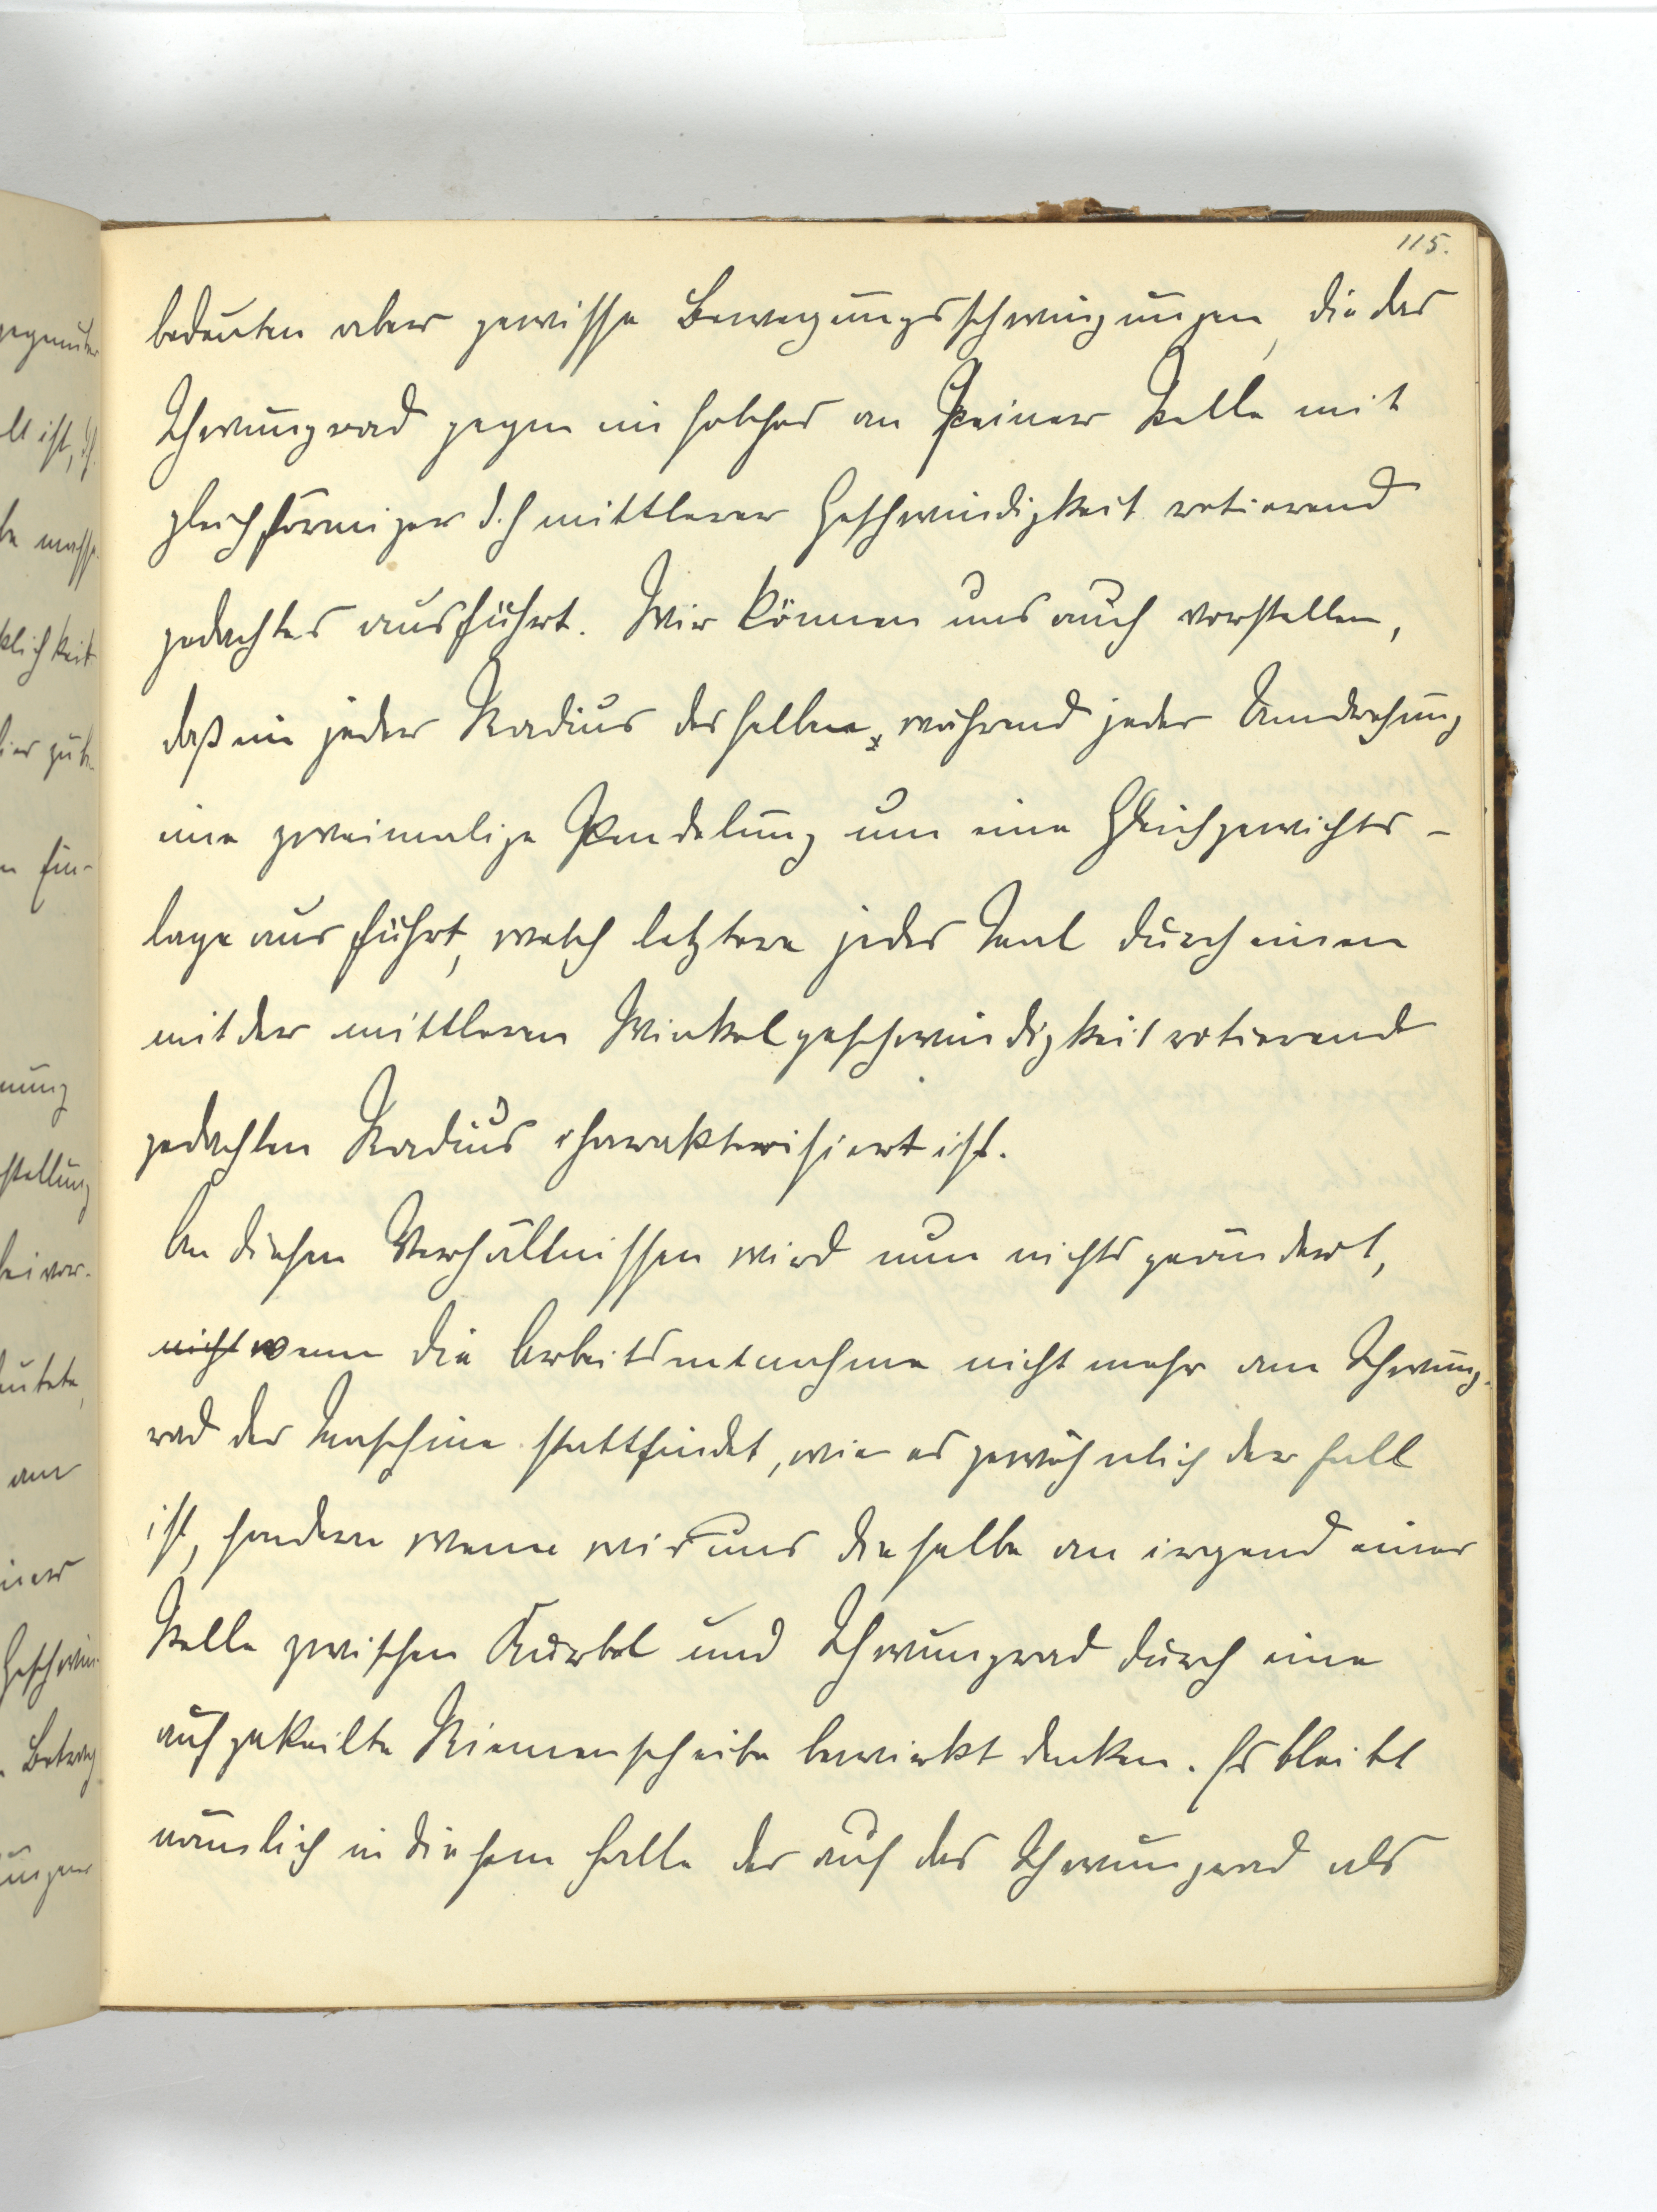 115.
bedeuten aber gewisse Bewegungsschwingungen, die das
Schwungrad gegen ein solches an seiner Stelle mit
gleichförmiger d.h mittlerer Geschwindigkeit rotierend
gedachtes ausführt. Wir können uns auch vorstellen,
daß ein jeder Radius desselben, während jeder Umdrehung
eine zweimalige Pendelung um eine Gleichgewichts-
lage ausführt, welch letztere jedes Mal durch einen
mit der mittleren Winkelgeschwindigkeit rotierend
gedachten Radius charakterisiert ist.
An diesen Verhältnissen wird nun nichts geändert,
nicht wenn die Arbeitsentnahme nicht mehr am Schwung-
rad der Maschine stattfindet, wie es gewöhnlich der Fall
ist, sondern wenn wir uns dieselbe an irgend einer
Stelle zwischen Kurbel und Schwungrad durch eine
aufgekeilte Riemenscheibe bewirkt denken. Es bleibt
nämlich in diesem Falle der auf das Schwungrad als